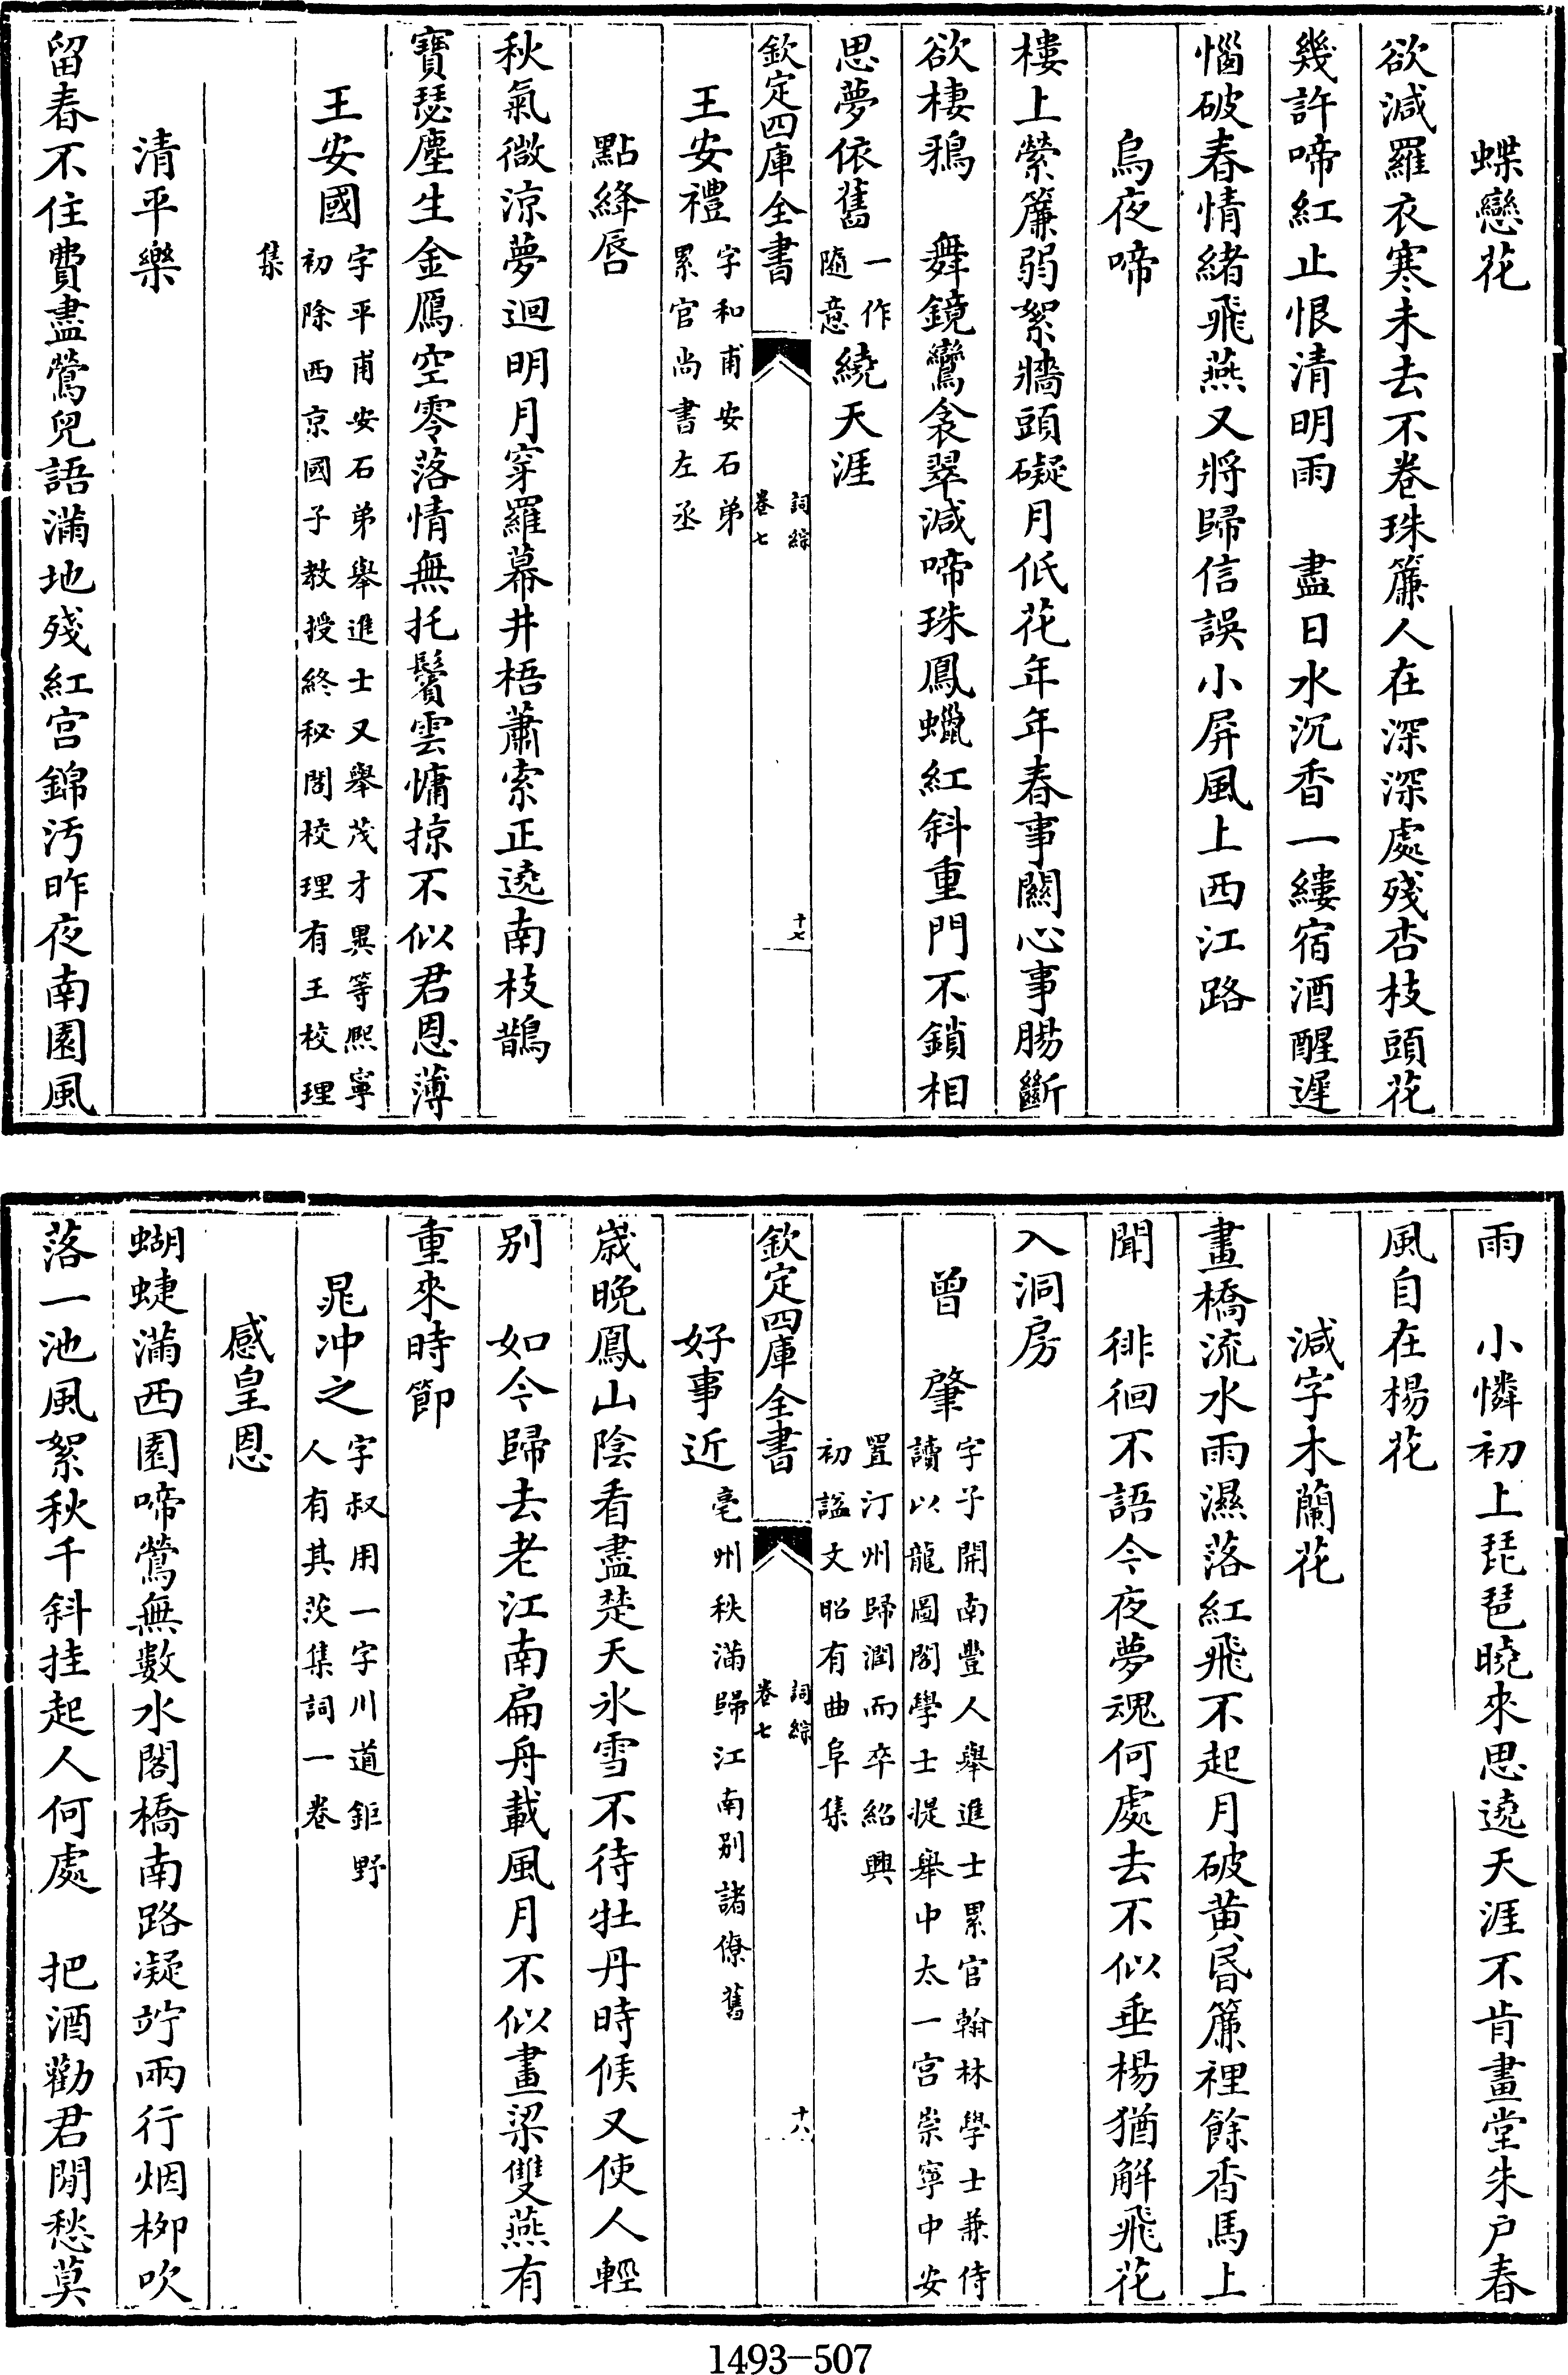 蝶戀花
欲減羅衣寒未去不卷珠簾人在深深處殘杏枝頭花
幾許啼紅止恨清明雨　盡日水沉香一縷宿酒醒遲
惱破春情緒飛燕又將歸信誤小屏風上西江路
烏夜啼
樓上縈簾弱絮牆頭礙月低花年年春事關心事腸斷
欲棲鴉　舞鏡鸞衾翠減啼珠鳳蠟紅斜重門不鎖相
思夢依舊一作隨意繞天涯
欽定四庫全書　詞綜卷七　十七
王安禮字和甫安石弟累官尚書左丞
點絳唇
秋氣微涼夢迴明月穿羅幕井梧蕭索正遶南枝鵲
寶瑟塵生金鴈空零落情無托鬢雲慵掠不似君恩薄
王安國字平甫安石弟舉進士又舉茂才異等熙寧初除西京國子教授終秘閣校理有王校理
集
清平樂
留春不住費盡鶯兒語滿地殘紅宮錦汚昨夜南園風
雨　小憐初上琵琶曉來思遶天涯不肯畫堂朱户春
風自在楊花
減字木蘭花
畫橋流水雨濕落紅飛不起月破黃昏簾裡餘香馬上
聞　徘徊不語今夜夢魂何處去不似垂楊猶解飛花
入洞房
曾　肇字子開南豐人舉進士累官翰林學士兼侍讀以龍圖閣學士提舉中太一宮崇寧中安
置汀州歸潤而卒紹興初諡文昭有曲阜集
欽定四庫全書　詞綜卷七　十八
好事近亳州秩滿歸江南别諸僚舊
歲晚鳳山陰看盡楚天氷雪不待牡丹時候又使人輕
别　如今歸去老江南扁舟載風月不似畫梁雙燕有
重來時節
晁冲之字叔用一字川道鉅野人有其茨集詞一卷
感皇恩
蝴蝶滿西園啼鶯無數水閣橋南路凝竚兩行烟栁吹
落一池風絮秋千斜挂起人何處　把酒勸君閒愁莫
1493-507